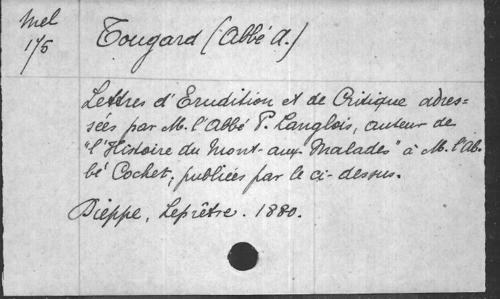 Mel
175
Tougard (Abbé A.)
Lettres d'Erudition et de Critique adres-
sées par M. l'Abbé P. Langlois, auteur de
"l'Histoire du Mont-aux-Malades" à M. l'Ab-
bé Cochet, publiées par le ci-dessus.
Dieppe, Leprêtre. 1880.